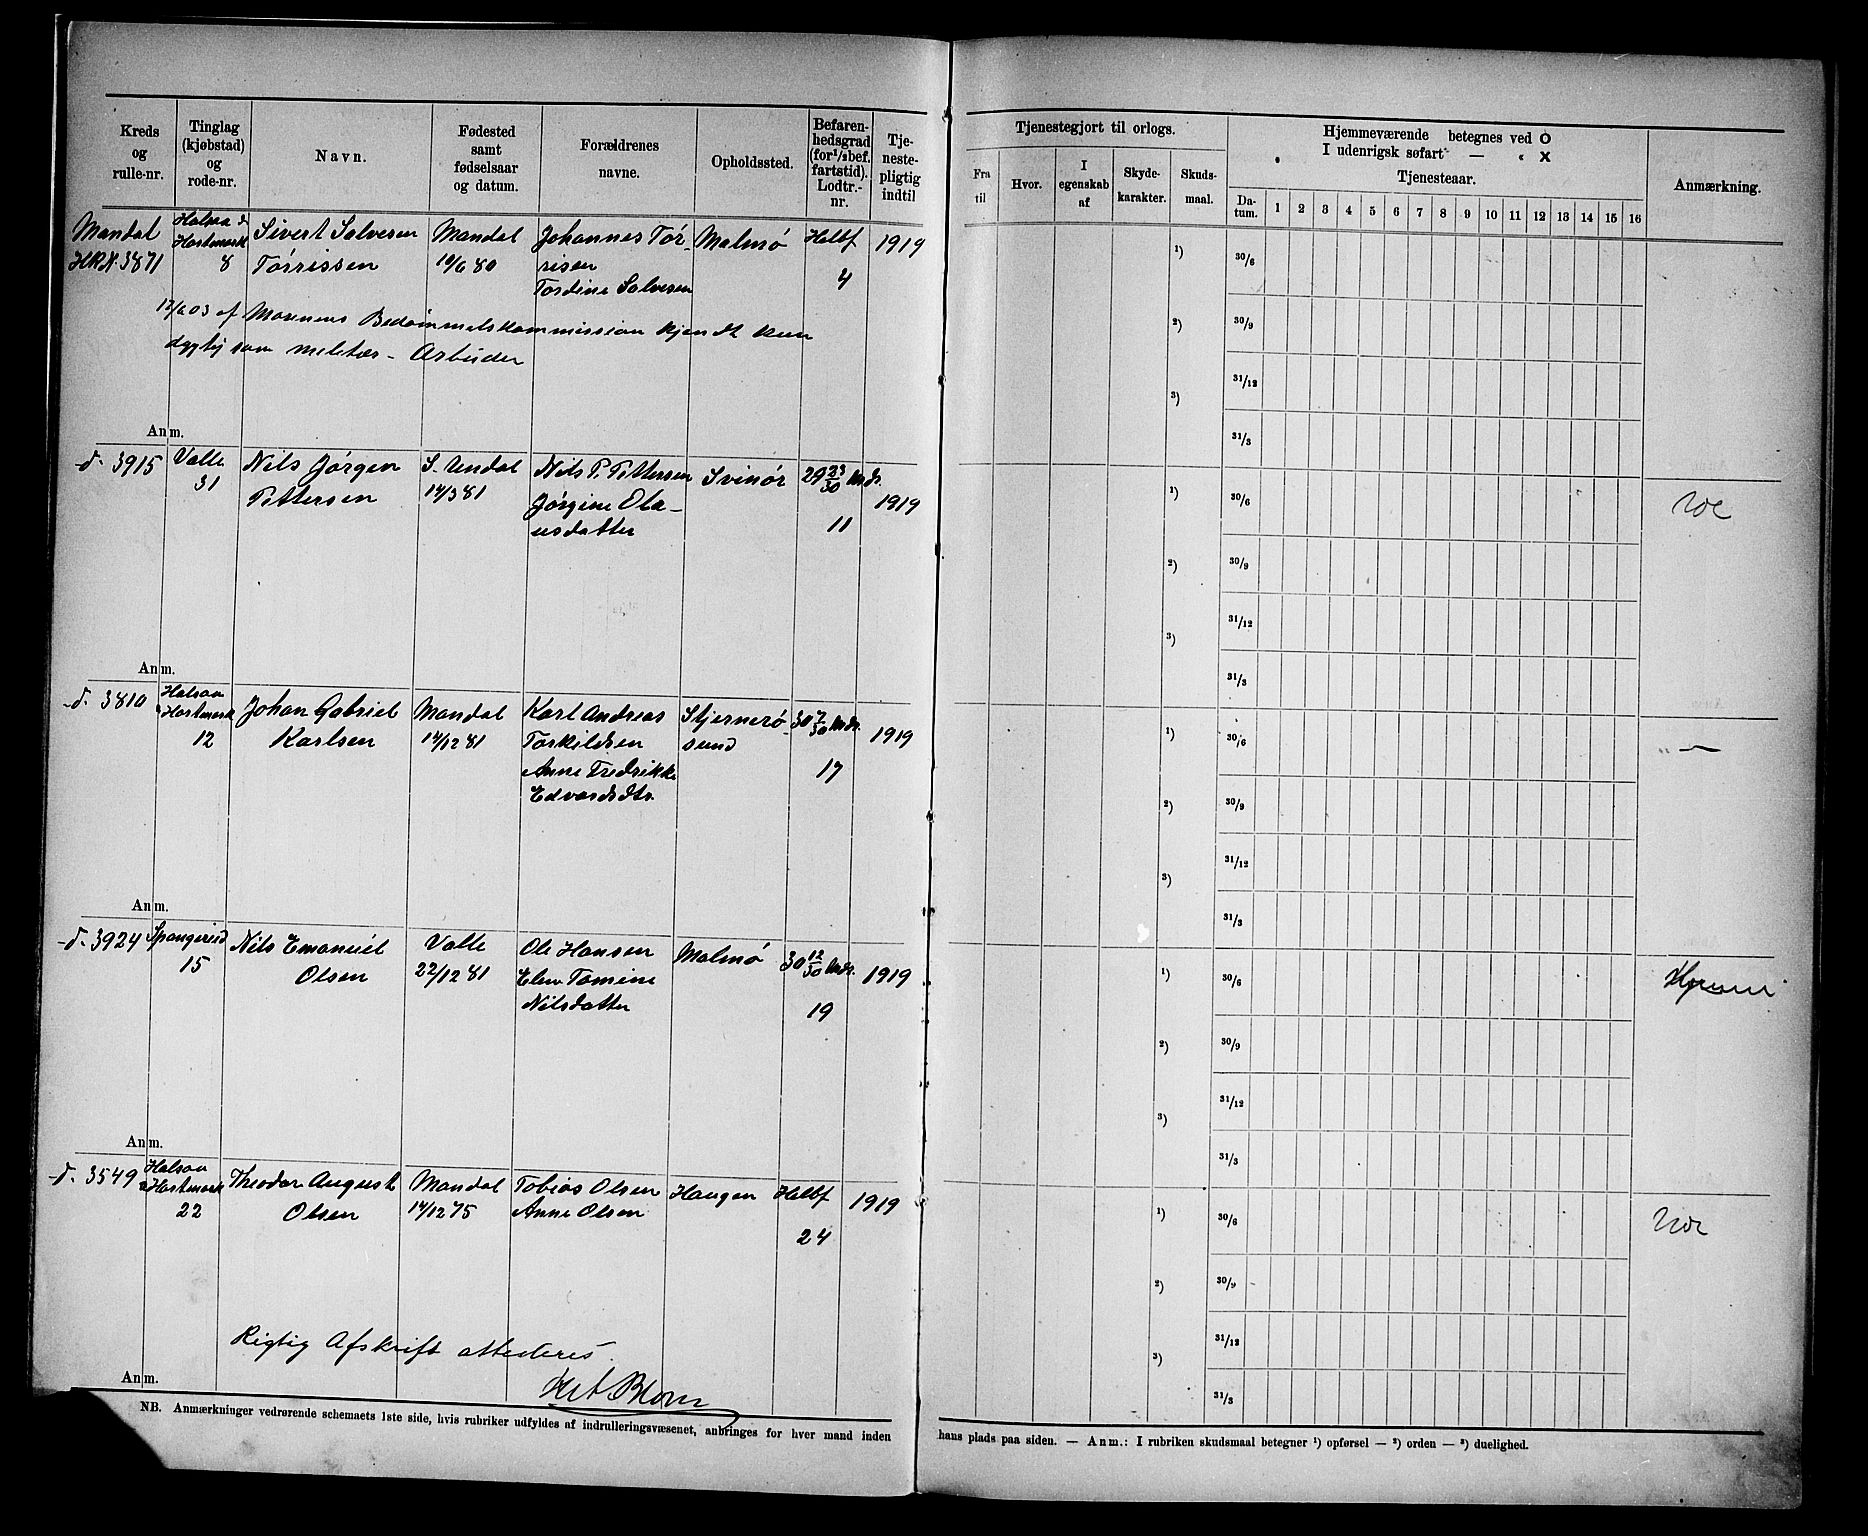 Kreds og rulle-nr.
Tinglag (kjøbstad) og rode-nr.
Navn.
Fødested samt fødselsaar og datum.
Forældrenes navne.
Opholdssted.
Befaren-hedsgrad (for 1/2 bef. fartstid). Lodtr.-nr.
Tje-neste-pligtig indtil
Tjenestegjort til orlogs.
Fra til
Hvor.
I egenskab af
Skyde-karakter.
Skuds-maal.
Hjemmeværende betegnes ved O
I udenrigsk søfart — " X
Tjenesteaar.
Da-tum. 1 2 3 4 5 6 7 8 9 10 11 12 13 14 15 16
Anmærkning.
Mandal Halsaa & Sivert Salvesen Mandal Johannes Tör- Malmø Halbf 1919
HRN. 3871 Hartmark Törrissen 10/6 80 risen
8 Tordine Salvesen 4
12/6 03 af Marinens Bedømmelskommission kjendt kun
dygtig som militær-Arbeider
1) 30/6
2) 30/9
31/12
3)
31/3
Anm.
-d- 3915 Valle Nils Jørgen S. Undal Nils P. Pettersen Svinør 29 23/30 Mdr. 1919
31 Pettersen 14/3 81 Jørgine Ola-
usdatter 11
1) 30/6
2) 30/9
31/12
3)
31/3
Anm.
-d- 3810 Halsaa Johan Gabriel Mandal Karl Andreas Stjernerø- 30 7/30 Mdr. 1919
& Hartmark Karlsen 14/12 81 Torkildsen sund
12 Anne Fredrikke 17
Edvardsdtr.
1) 30/6 " —
2) 30/9
31/12
3)
31/3
Anm.
-d- 3924 Spangereid Nils Emanuel Valle Ole Hansen Malmø 30 12/30 Mdr. 1919
15 Olsen 22/12 81 Elen Tomine
Nilsdatter 19
1) 30/6 Hjemme
2) 30/9
31/12
3)
31/3
Anm.
-d- 3549 Halsaa Theodor August Mandal Tobias Olsen Haugen Halbf 1919
& Hartmark Olsen 14/12 75 Anne Olsen
22 24
1) 30/6
2) 30/9
31/12
3)
31/3
Rigtig Afskrift attesteres.
Anm.
NB. Anmærkninger vedrørende schemaets 1ste side, hvis rubriker udfyldes af indrulleringsvæsenet, anbringes for hver mand inden
hans plads paa siden. — Anm.: I rubriken skudsmaal betegner 1) opførsel — 2) orden — 3) duelighed.